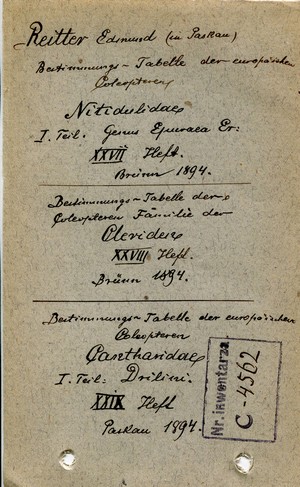 Reitter Edmund (in Paskau)
Bestimmungs-Tabelle der europäischen
Coleopteren
Nitidulidae
I. Teil. Genus Epuraea Er:
XXVII Heft.
Brünn 1894.
Bestimmungs-Tabelle der
Coleopteren Familie der
Cleriden
XXVIII Heft.
Brünn 1894.
Bestimmungs-Tabelle der europäischen
Coleopteren
Cantharidae
I. Teil: Drilini.
XXIX Heft
Paskau 1894.
Nr. inwentarza
C-4562